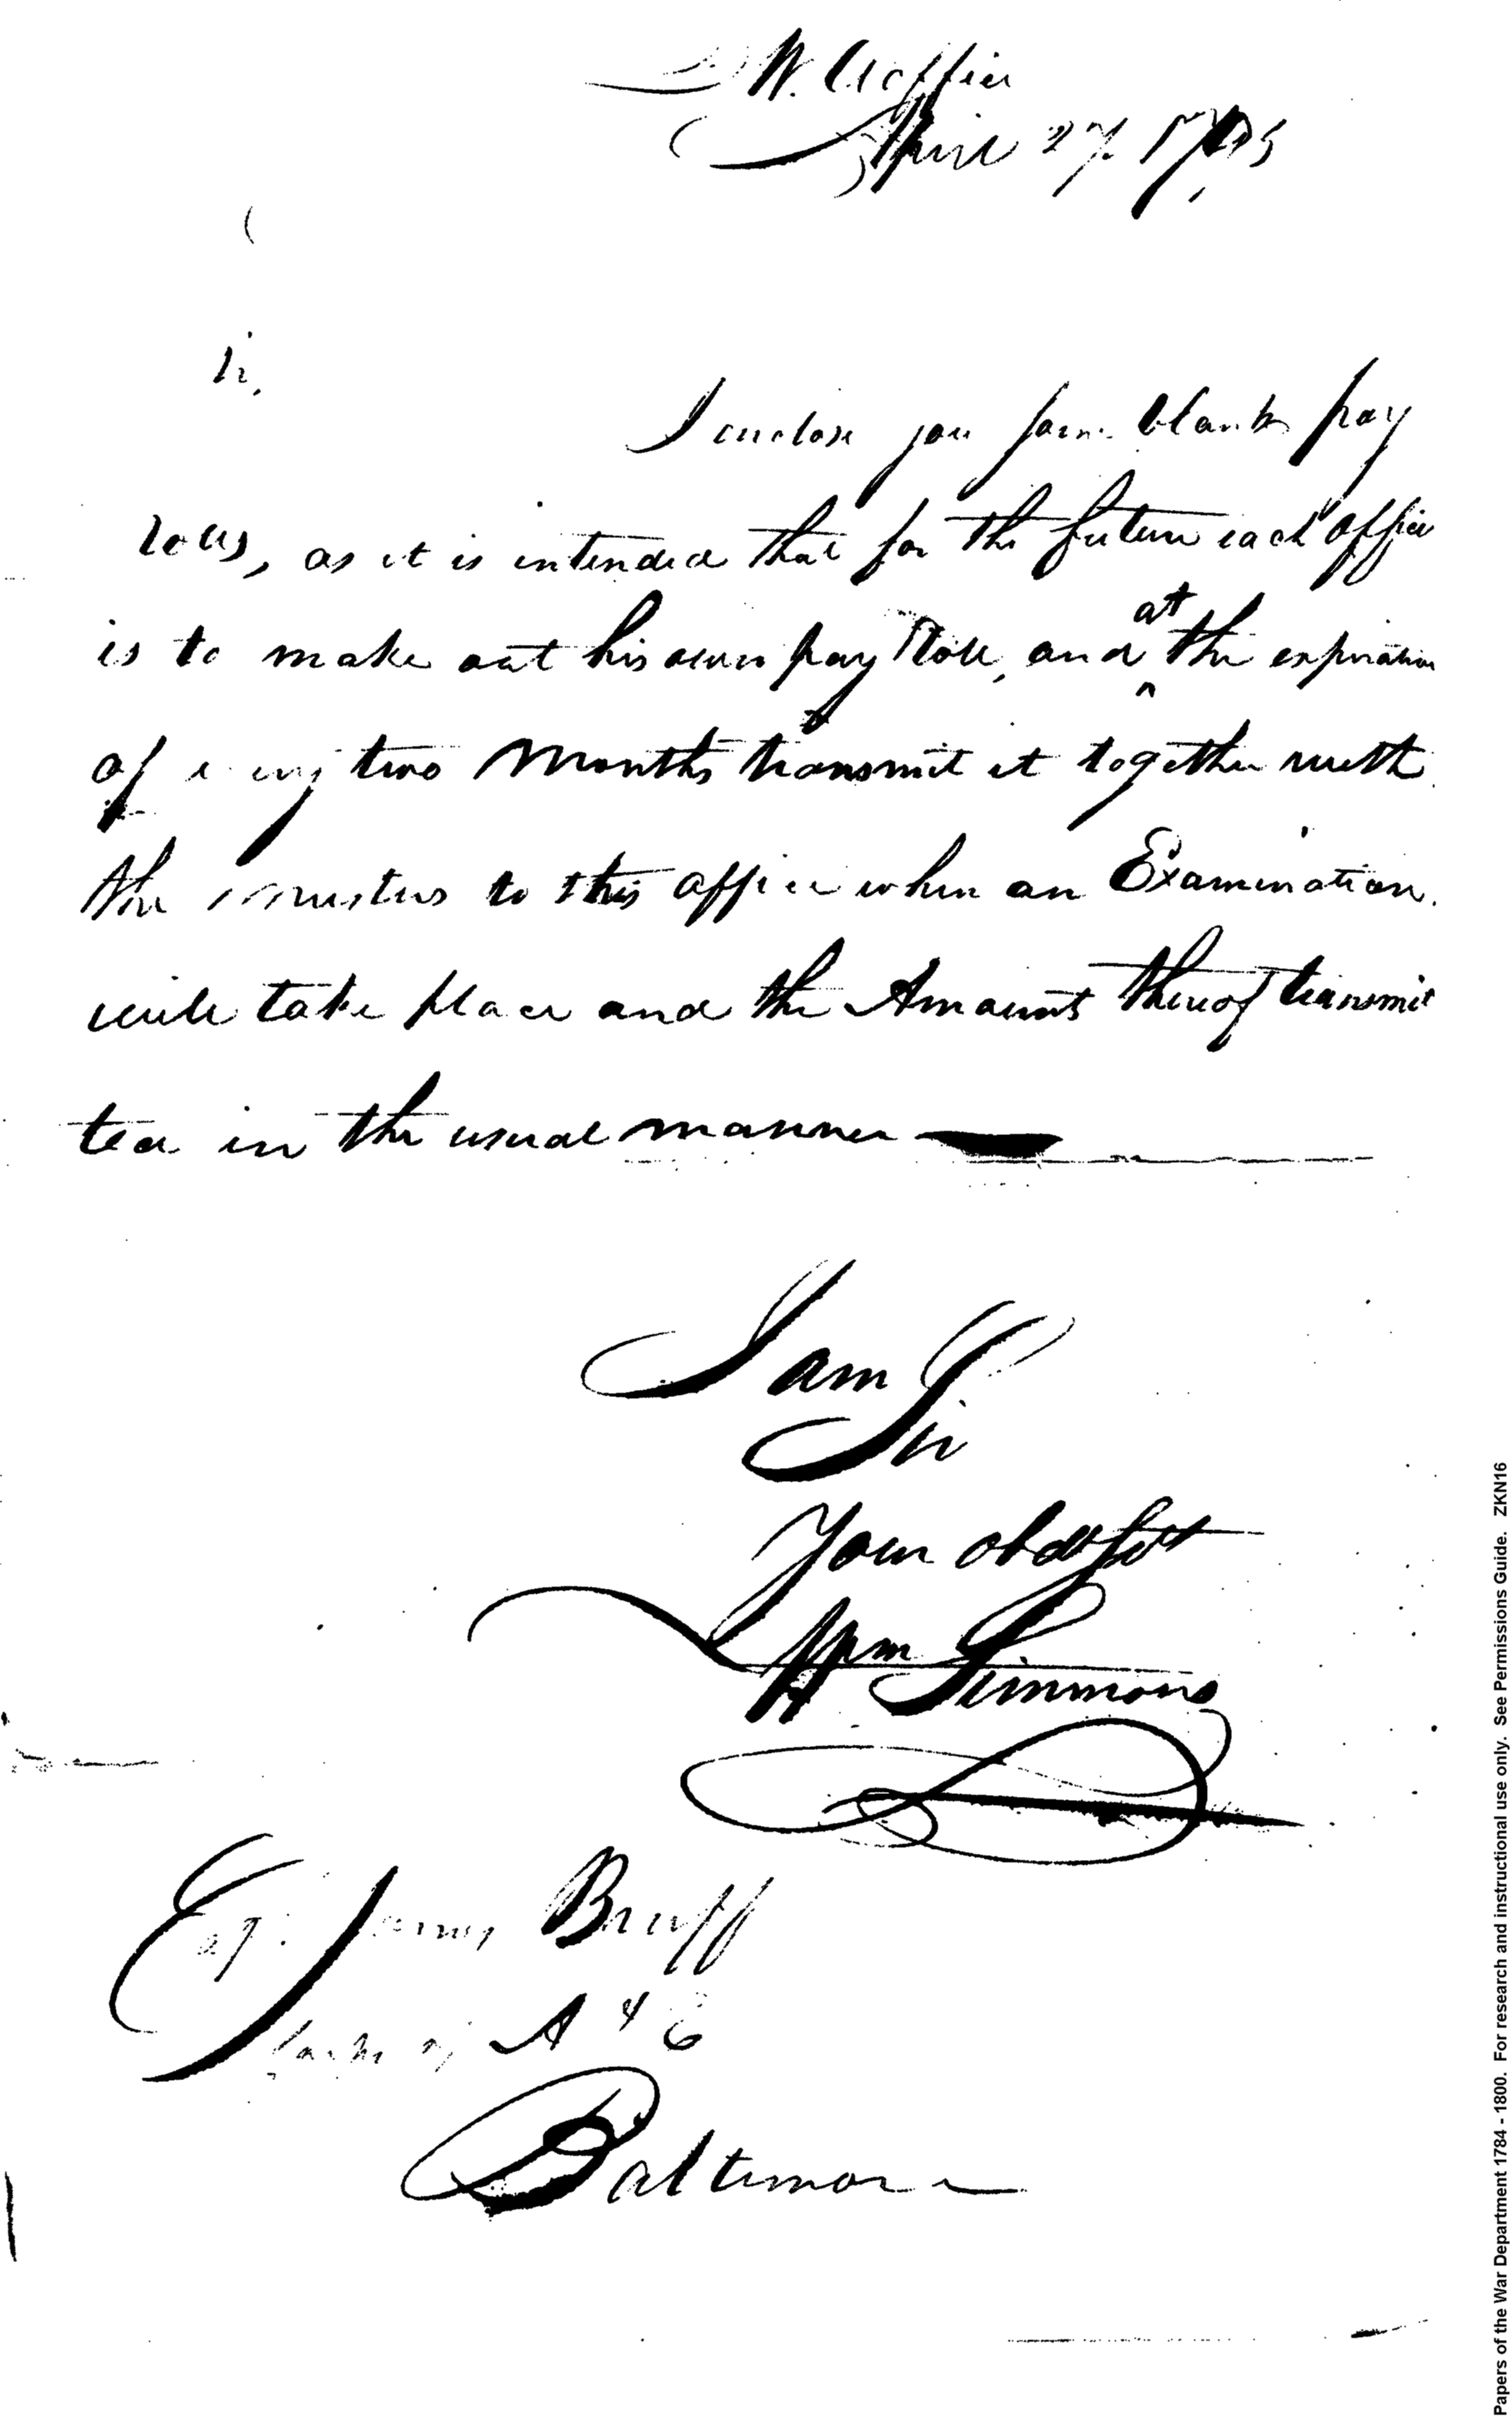 W. Office
April 27. 1795
ir,
I enclose you some blank pay
rolls, as it is intended that for the future each officer
is to make out his own pay Roll, and at the expiration
of every two Months transmit it together with
the musters to this office when an Examination
will take place and the Amount thereof transmit
ted in the usual manner
I am
Sir
Your obdt Sert
Wm Simmons
Cap. James Bruff
Corps of A & E
Baltimore
Papers of the War Department 1784 - 1800. For research and instructional use only. See Permissions Guide. ZKN16